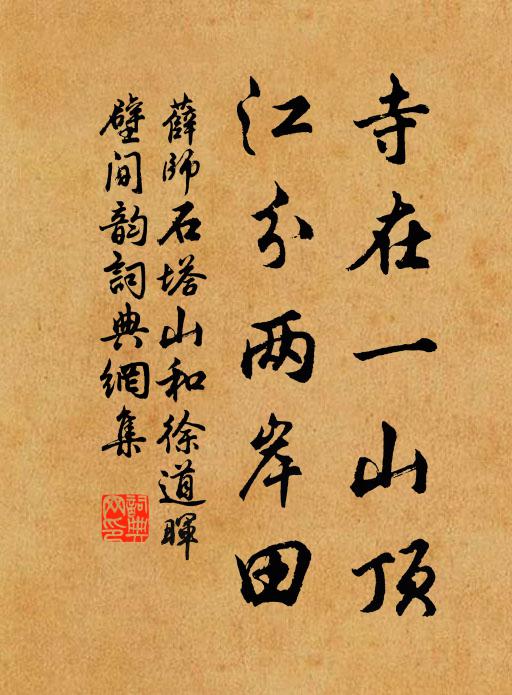 寺在一山顶
江分两岸田
薛師石塔山和徐道暉
壁间韵詞典網集
詞典网印